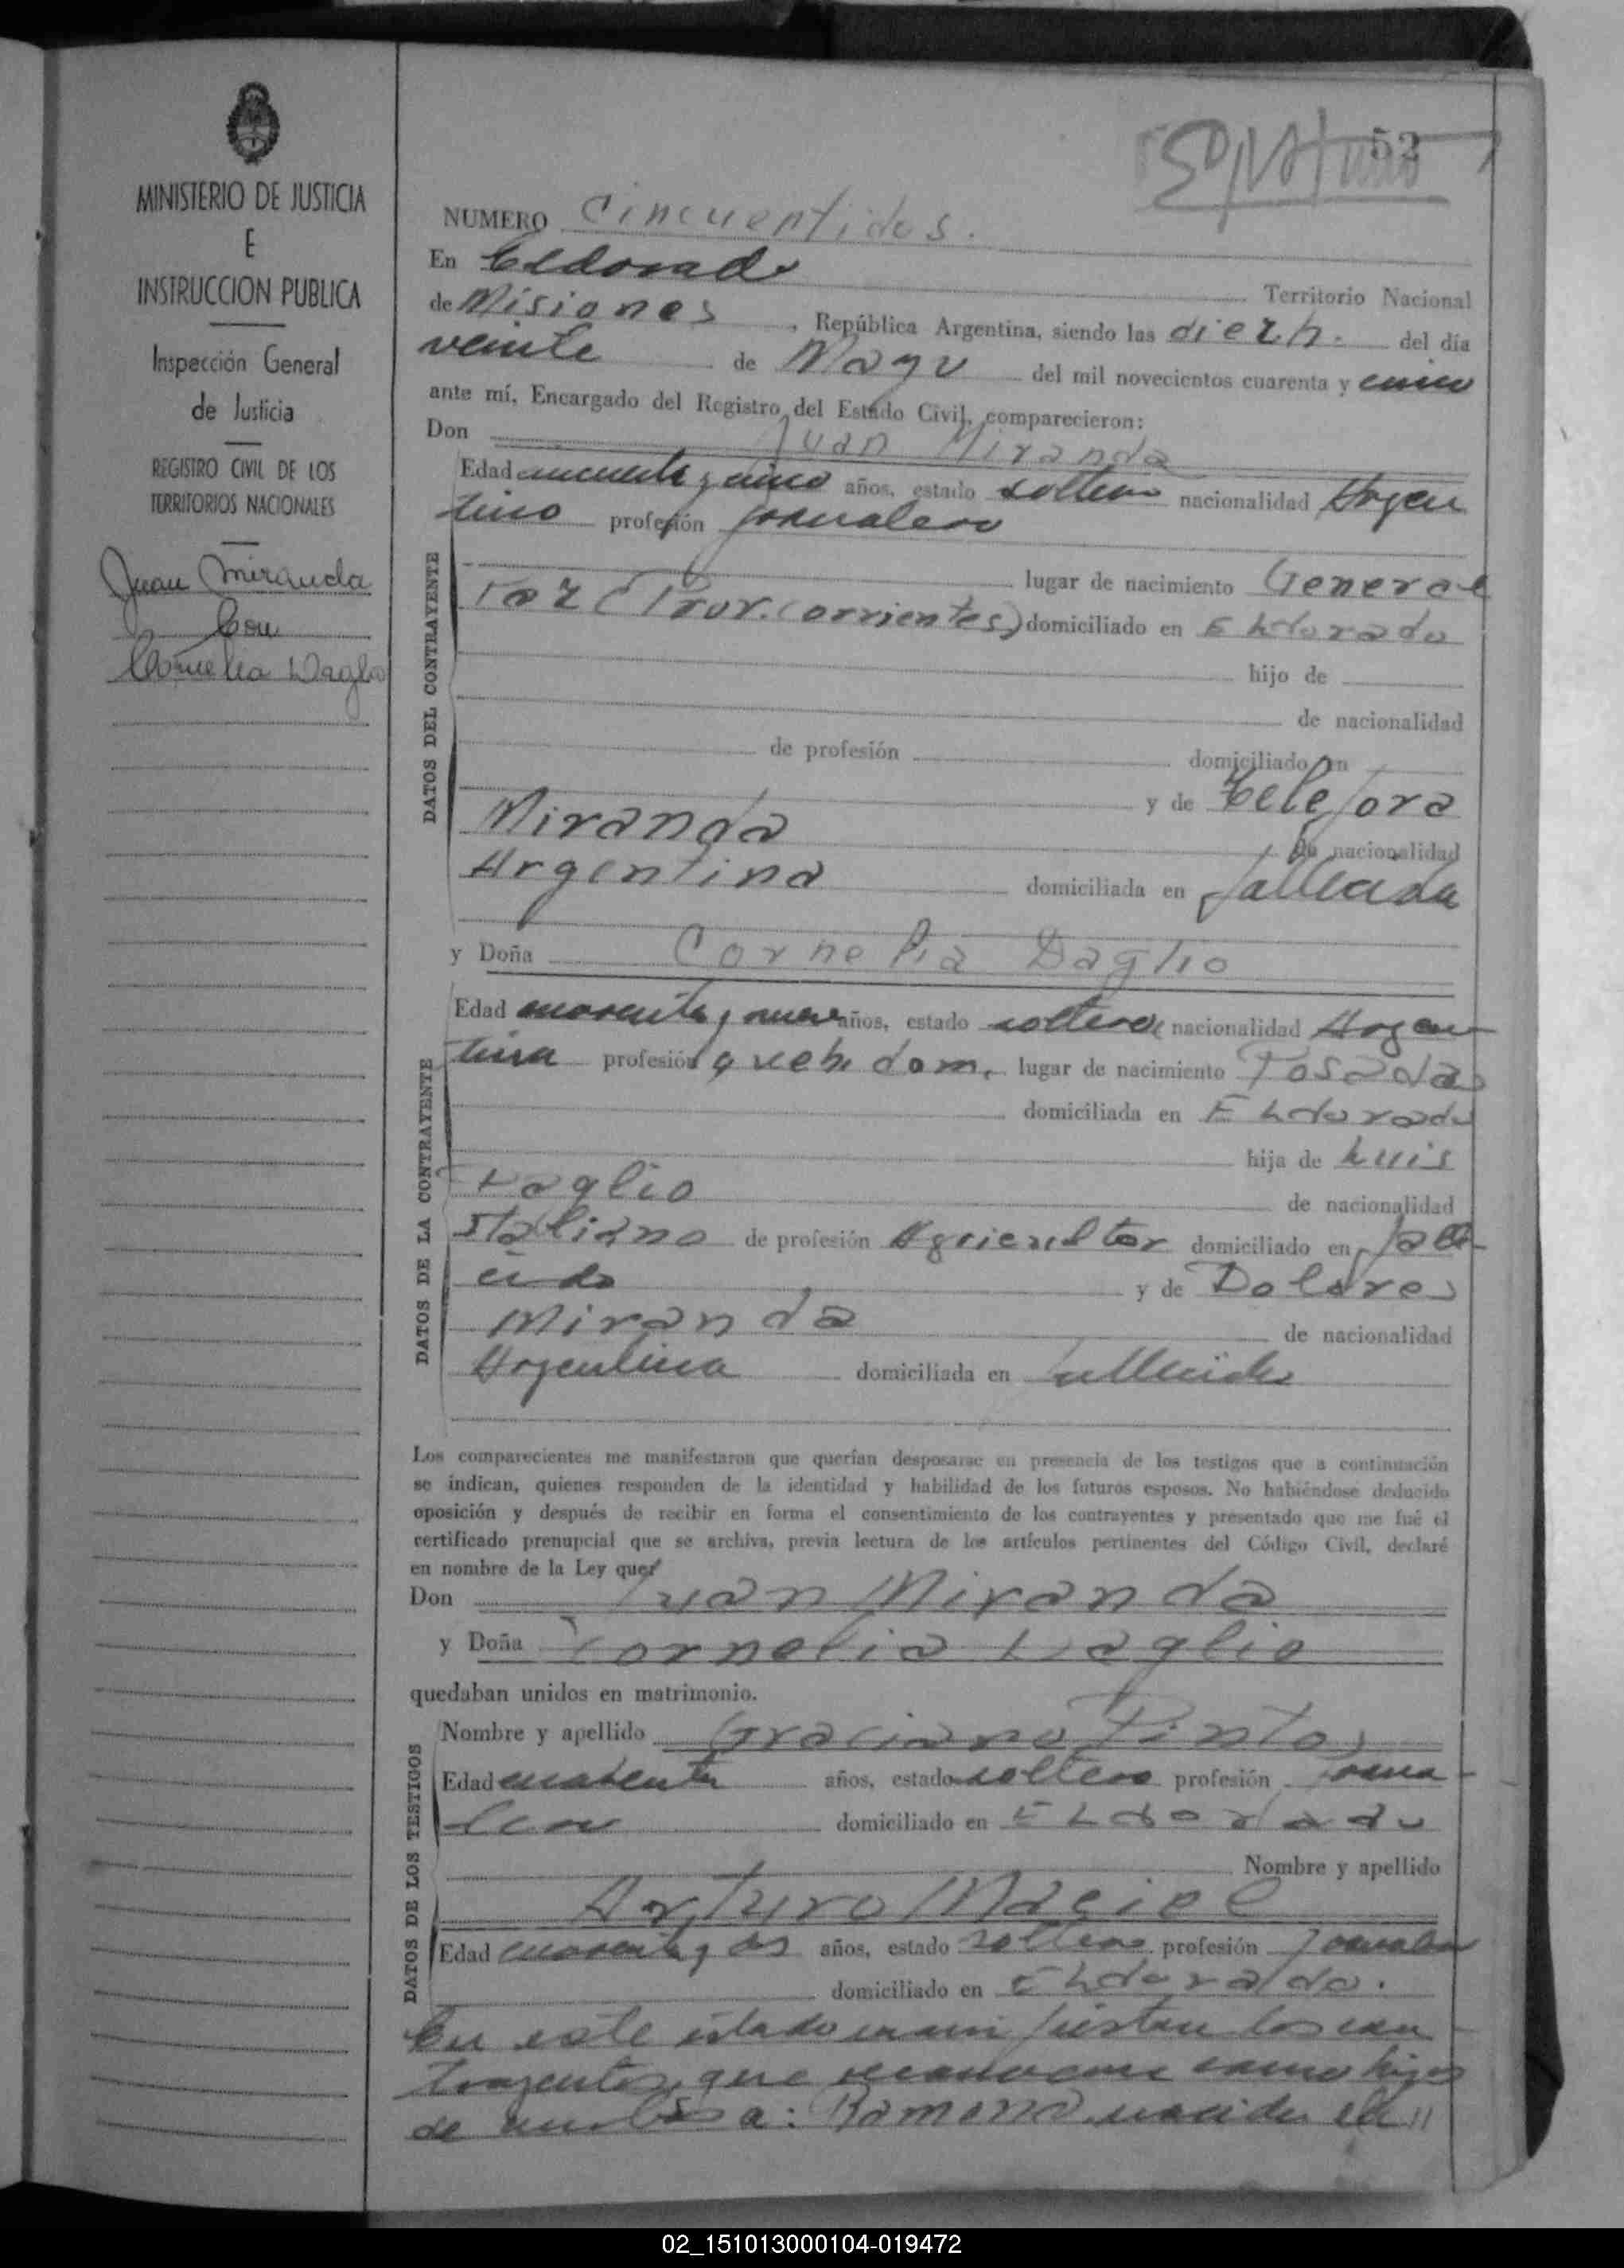 MINISTERIO DE JUSTICIA
E
INSTRUCCION PUBLICA
Inspección General
de Justicia
REGISTRO CIVIL DE LOS
TERRITORIOS NACIONALES
Juan Miranda
Con
Cornelia Daglio
52
NUMERO Cincuentidos.
En Eldorado Territorio Nacional
de Misiones, República Argentina, siendo las diez h. del día
veinte de Mayo del mil novecientos cuarenta y cinco
ante mí, Encargado del Registro del Estado Civil, comparecieron:
Don Juan Miranda
DATOS DEL CONTRAYENTE
Edad cincuenta y cinco años, estado soltero nacionalidad Argen
tino profesión jornalero
lugar de nacimiento General
Paz (Prov. Corrientes) domiciliado en Eldorado
hijo de
de nacionalidad
de profesión domiciliado en
y de Telefora
Miranda de nacionalidad
Argentina domiciliada en fallecida
y Doña Cornelia Daglio
DATOS DE LA CONTRAYENTE
Edad cuarenta y nueve años, estado soltera nacionalidad Argen
tina profesión queh. dom. lugar de nacimiento Posadas
domiciliada en Eldorado
hija de Luis
Daglio de nacionalidad
Italiano de profesión Agricultor domiciliado en falle-
cido y de Dolores
Miranda de nacionalidad
Argentina domiciliada en fallecida
Los comparecientes me manifestaron que querían desposarse en presencia de los testigos que a continuación
se indican, quienes responden de la identidad y habilidad de los futuros esposos. No habiéndose deducido
oposición y después de recibir en forma el consentimiento de los contrayentes y presentado que me fué el
certificado prenupcial que se archiva, previa lectura de los artículos pertinentes del Código Civil, declaré
en nombre de la Ley que:
Don Juan Miranda
y Doña Cornelia Daglio
quedaban unidos en matrimonio.
DATOS DE LOS TESTIGOS
Nombre y apellido Graciano Pinto
Edad cuarenta años, estado soltero profesión jorna-
lero domiciliado en Eldorado
Nombre y apellido
Arturo Maciel
Edad cuarenta y dos años, estado soltero profesión jornalero
domiciliado en Eldorado.
En este estado manifiestan los con
trayentes que reconocen como hijos
de ambos a: Ramona nacida el 11
02_151013000104-019472